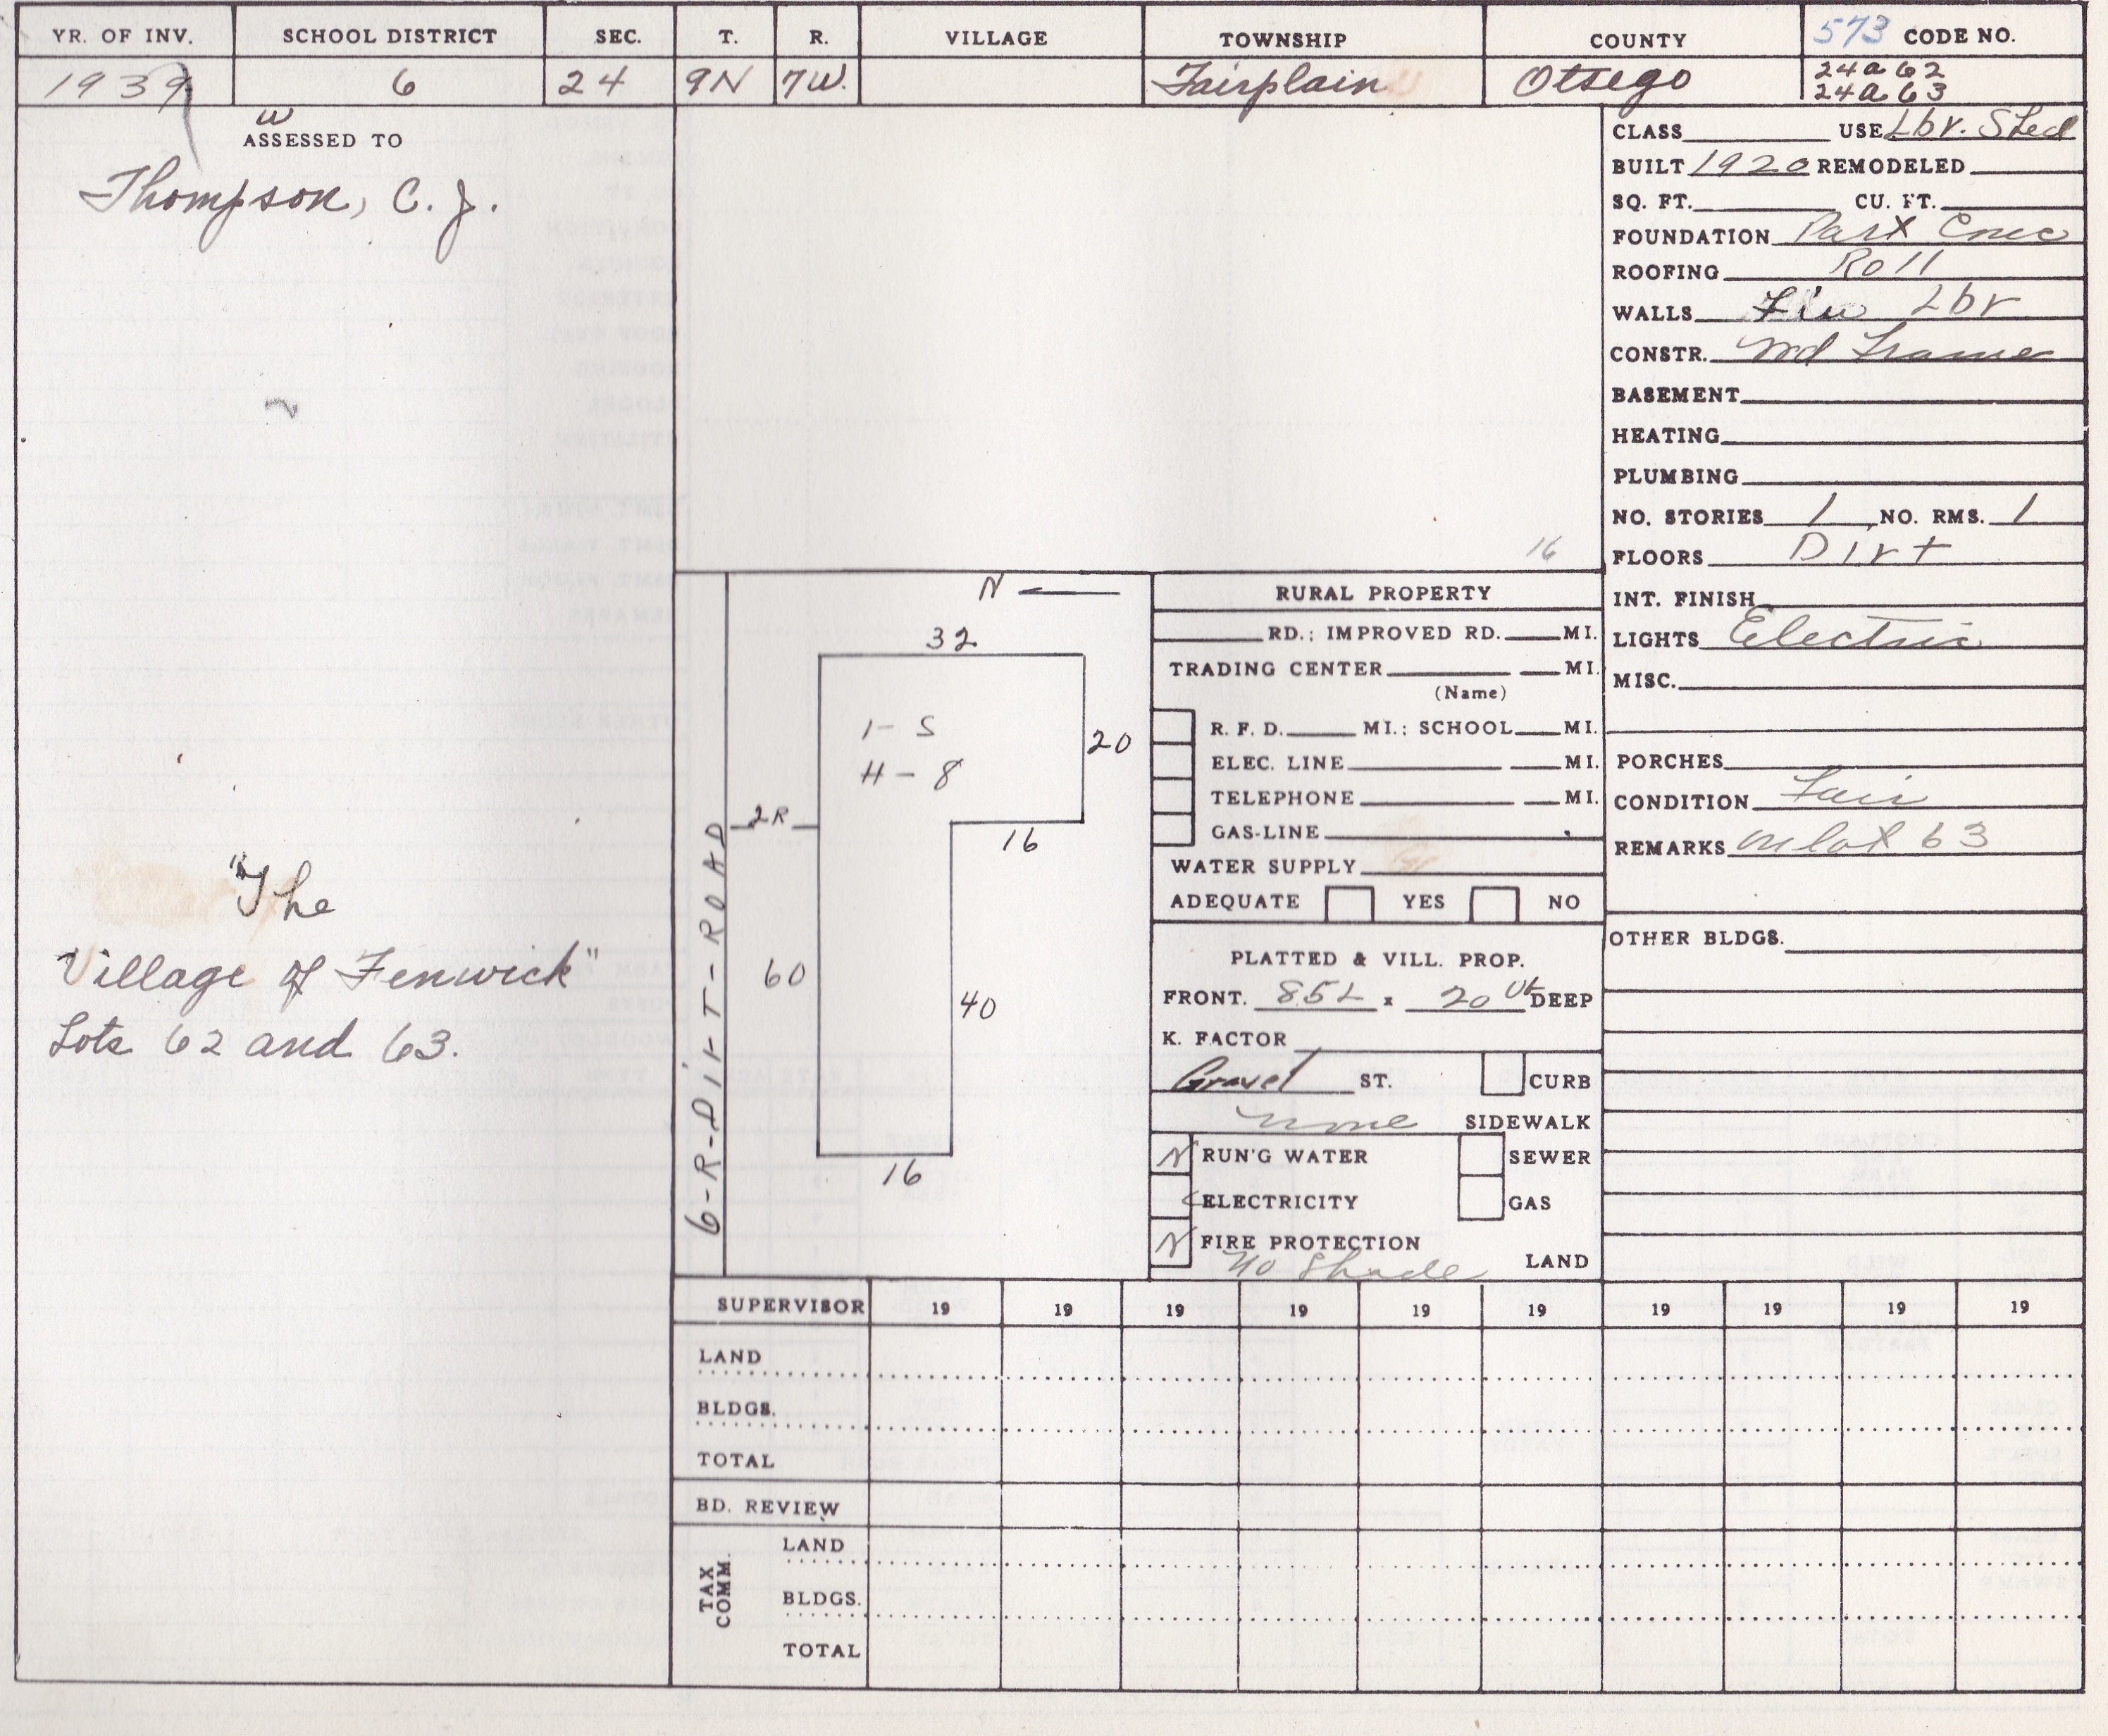 YR. OF INV. SCHOOL DISTRICT SEC. T. R. VILLAGE TOWNSHIP COUNTY 573 CODE NO.
1939 6 24 9N 7W. Fairplain Otsego 24a62
24a63
w
ASSESSED TO
Thompson, C. J.
"The
Village of Fenwick"
Lots 62 and 63.
16
N
32
1-S
H-8
20
2R
16
60
40
16
6-R-Dirt-ROAD
RURAL PROPERTY
RD.; IMPROVED RD. MI.
TRADING CENTER MI.
(Name)
R. F. D. MI.; SCHOOL MI.
ELEC. LINE MI.
TELEPHONE MI.
GAS-LINE
WATER SUPPLY
ADEQUATE YES NO
PLATTED & VILL. PROP.
FRONT. 85L x 20 DEEP
K. FACTOR
Gravel ST. CURB
none SIDEWALK
N RUN'G WATER SEWER
ELECTRICITY GAS
N FIRE PROTECTION
No Shade LAND
CLASS USE Lbr. Shed
BUILT 1920 REMODELED
SQ. FT. CU. FT.
FOUNDATION Part Conc
ROOFING Roll
WALLS Lbr
CONSTR. Wd Frame
BASEMENT
HEATING
PLUMBING
NO. STORIES 1 NO. RMS. 1
FLOORS Dirt
INT. FINISH
LIGHTS Electric
MISC.
PORCHES
CONDITION Fair
REMARKS on lot 63
OTHER BLDGS.
SUPERVISOR 19 19 19 19 19 19 19 19 19 19
LAND
BLDGS.
TOTAL
BD. REVIEW
TAX COMM.
LAND
BLDGS.
TOTAL